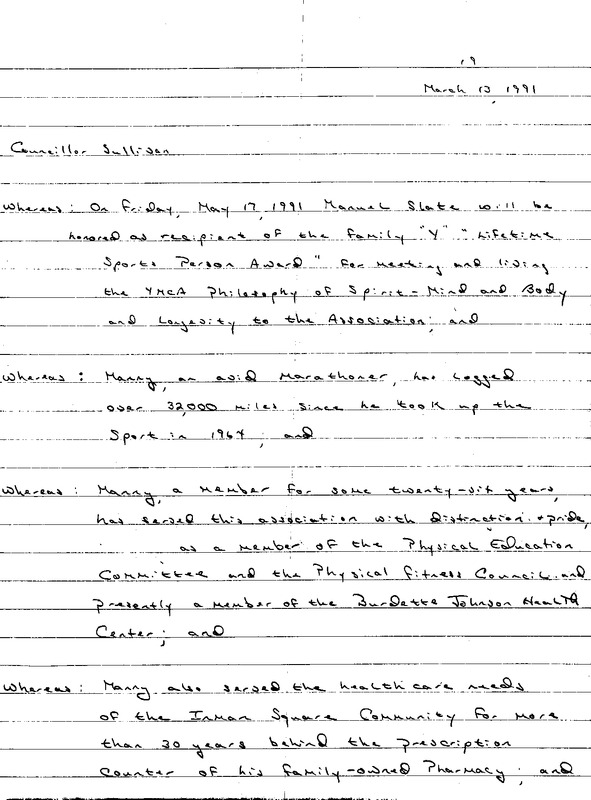 19
March 13, 1991
Councillor Sullivan
Whereas: On Friday, May 17, 1991 Manuel Slate will be
honored as recipient of the family "Y" "Lifetime
Sports Person Award" for meeting and living
the YMCA Philosophy of Spirit-Mind and Body
and Longevity to the Association; and
Whereas: Manny, an avid Marathoner, has logged
over 32,000 miles since he took up the
Sport in 1964; and
Whereas: Manny, a member for some twenty-six years,
has served this association with distinction & pride,
as a member of the Physical Education
Committee and the Physical Fitness Council and
presently a member of the Burdette Johnson Health
Center; and
Whereas: Manny also served the health care needs
of the Inman Square Community for more
than 30 years behind the prescription
counter of his family-owned Pharmacy; and